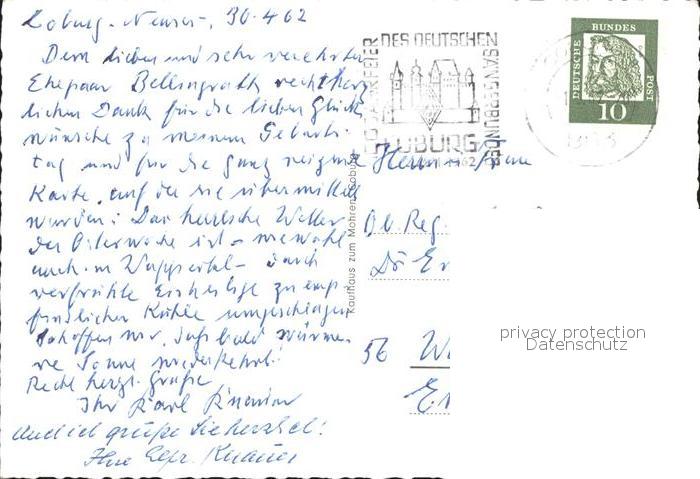 Coburg-Neuses, 30.4.62
Dem lieben und sehr verehrten
Ehepaar Bellingrath recht herz
lichen Dank für die lieben Glück
wünsche zu meinem Geburts
tag und für die ganz reizende
Karte, auf der sie übermittelt
wurden! Das herrliche Wetter
der Osterwoche ist - sowohl
auch in Wuppertal - durch
verfrühte Eisheilige zu emp
findlicher Kühle umgeschlagen
hoffen wir, daß bald wärme
re Sonne wiederkehrt!
Recht herzl. Grüße
Ihr Karl
Auch ich grüße Sie herzlich!
Ihre
Kaufhaus zum Mohren Coburg
DES DEUTSCHEN
SÄNGERBUNDES
COBURG
1962
DEUTSCHE
BUNDES
POST
10
Herrn u. Frau
Ob. Reg.
Dr. Er
56 W
privacy protection
Datenschutz